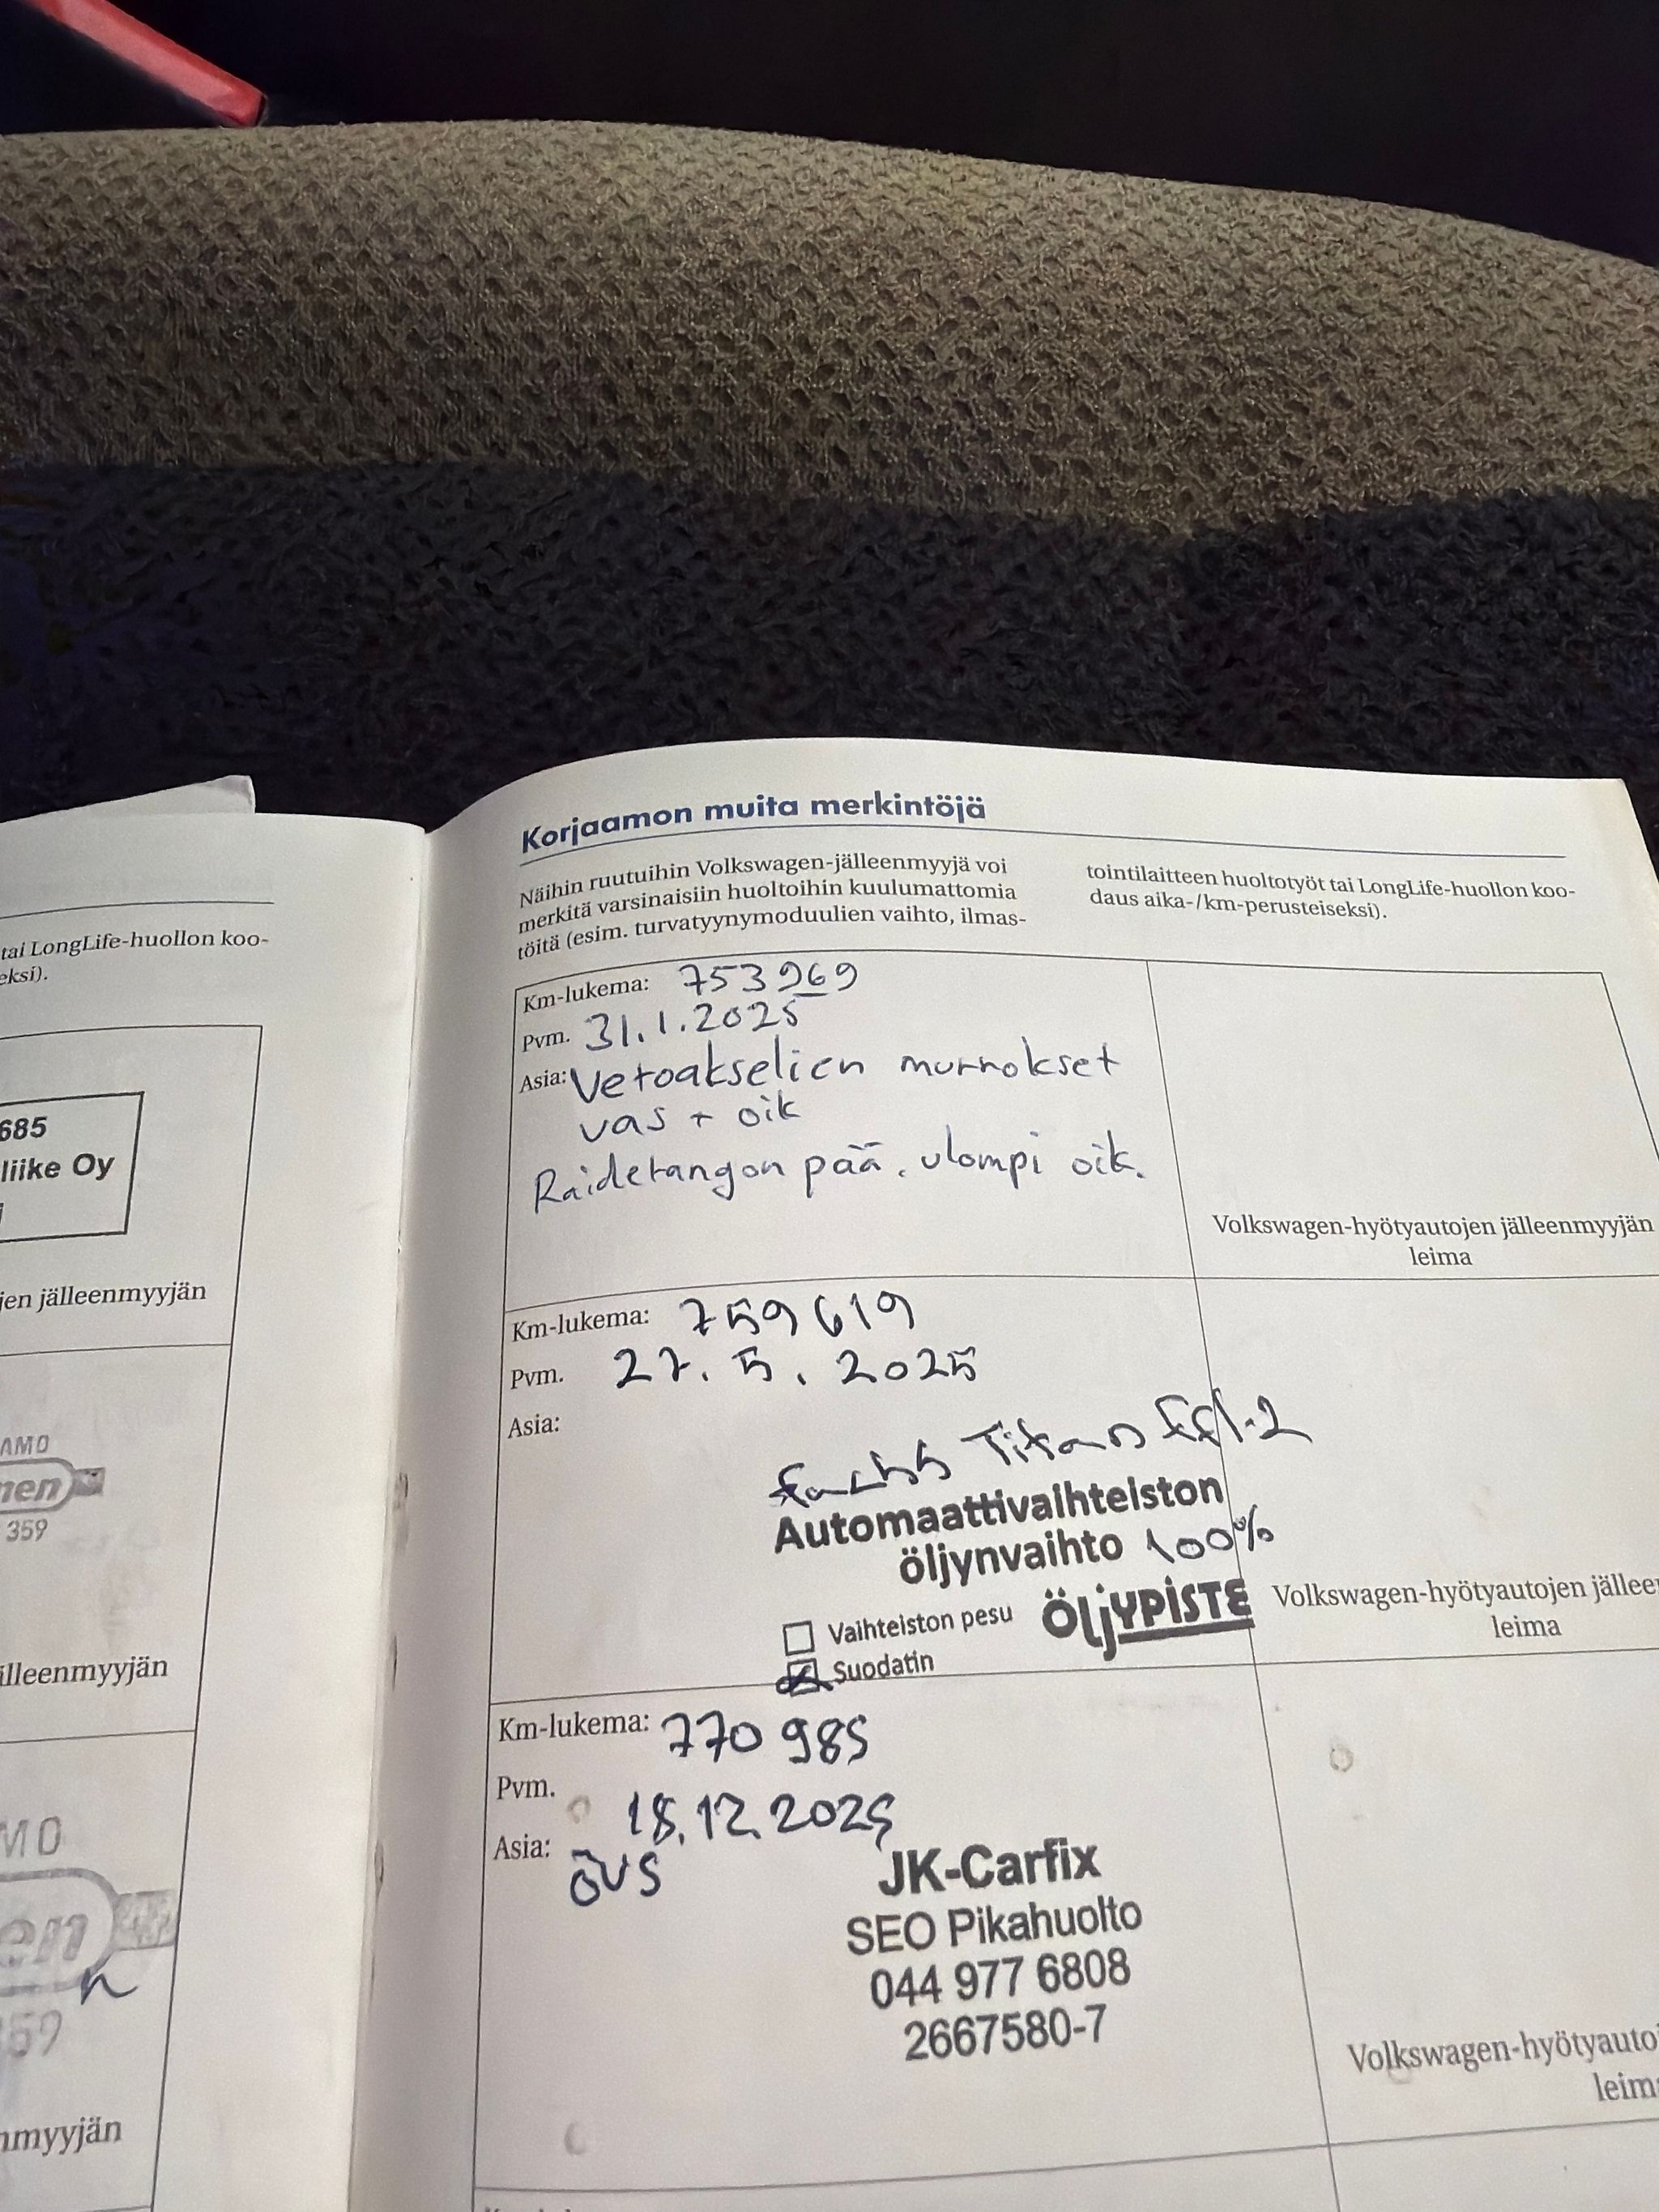 tai LongLife-huollon koo-
eksi).
685
liike Oy
jen jälleenmyyjän
AMO
nen
359
älleenmyyjän
MO
en
359
nmyyjän
Korjaamon muita merkintöjä
Näihin ruutuihin Volkswagen-jälleenmyyjä voi
merkitä varsinaisiin huoltoihin kuulumattomia
töitä (esim. turvatyynymoduulien vaihto, ilmas-
tointilaitteen huoltotyöt tai LongLife-huollon koo-
daus aika-/km-perusteiseksi).
Km-lukema: 753969
Pvm. 31.1.2025
Asia: Vetoakselien murrokset
vas + oik
Raidetangon pää. ulompi oik.
Volkswagen-hyötyautojen jälleenmyyjän
leima
Km-lukema: 759619
Pvm. 27.5.2025
Asia:
Titan
Automaattivaihteiston
öljynvaihto 100%
Vaihteiston pesu
ÖljYPISTE
Suodatin
Volkswagen-hyötyautojen jällee
leima
Km-lukema: 770 985
Pvm.
18.12.2025
Asia: ÖVS
JK-Carfix
SEO Pikahuolto
044 977 6808
2667580-7
Volkswagen-hyötyauto
leim